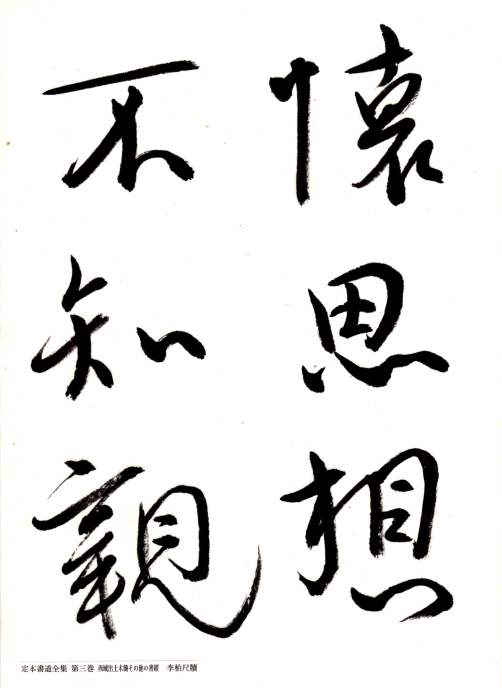 懐思想
不知親
定本書道全集 第三巻 西域出土木簡その他の書蹟 李柏尺牘